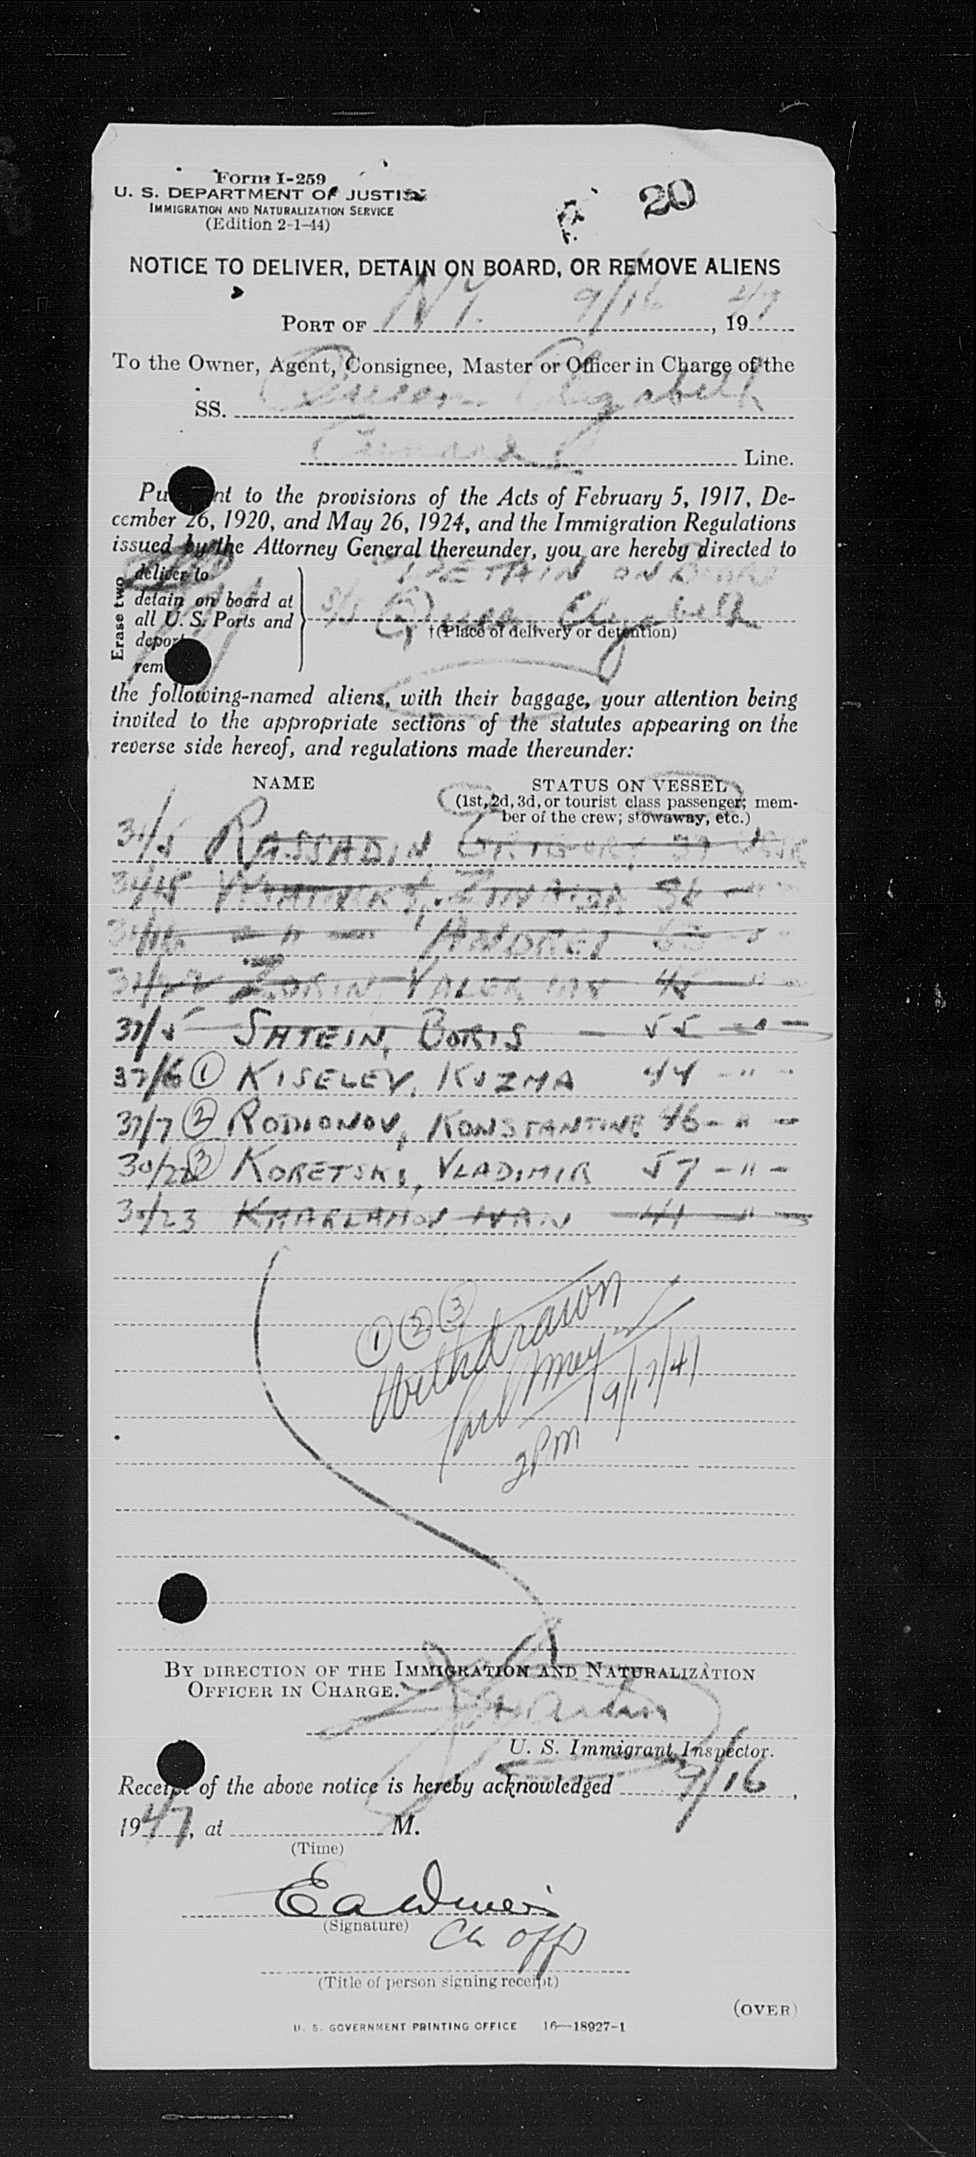 Form I-259
U. S. DEPARTMENT OF JUSTICE
IMMIGRATION AND NATURALIZATION SERVICE
(Edition 2-1-44)
20
NOTICE TO DELIVER, DETAIN ON BOARD, OR REMOVE ALIENS
PORT OF N.Y. 9/16, 1947
To the Owner, Agent, Consignee, Master or Officer in Charge of the
SS. Queen Elizabeth
Cunard Line.
Pursuant to the provisions of the Acts of February 5, 1917, De-
cember 26, 1920, and May 26, 1924, and the Immigration Regulations
issued by the Attorney General thereunder, you are hereby directed to
Erase two
deliver to
detain on board at
all U. S. Ports and
deport
remove
DETAIN ON BOARD
S/S Queen Elizabeth
†(Place of delivery or detention)
the following-named aliens, with their baggage, your attention being
invited to the appropriate sections of the statutes appearing on the
reverse side hereof, and regulations made thereunder:
NAME STATUS ON VESSEL
(1st, 2d, 3d, or tourist class passenger; mem-
ber of the crew; stowaway, etc.)
RASSADIN, GRIGORY 37 USSR
ZINAIDA
" ANDREI 63 "
ZORIN, VALERIAN 45 "
37/5 SHTEIN, BORIS - 55 - " -
37/6 (1) KISELEV, KUZMA 44 - " -
37/7 (2) RODIONOV, KONSTANTINE 46 - " -
30/22 (3) KORETSKI, VLADIMIR 57 - " -
30/23 KHARLAMOV IVAN 41 "
(1) (2) (3)
Withdrawn
9/17/47
2PM
BY DIRECTION OF THE IMMIGRATION AND NATURALIZATION
OFFICER IN CHARGE.
U. S. Immigrant Inspector.
Receipt of the above notice is hereby acknowledged 9/16,
1947, at M.
(Time)
(Signature)
Ch off
(Title of person signing receipt)
(OVER)
U. S. GOVERNMENT PRINTING OFFICE 16—18927-1